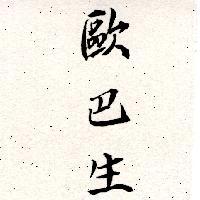 歐巴生